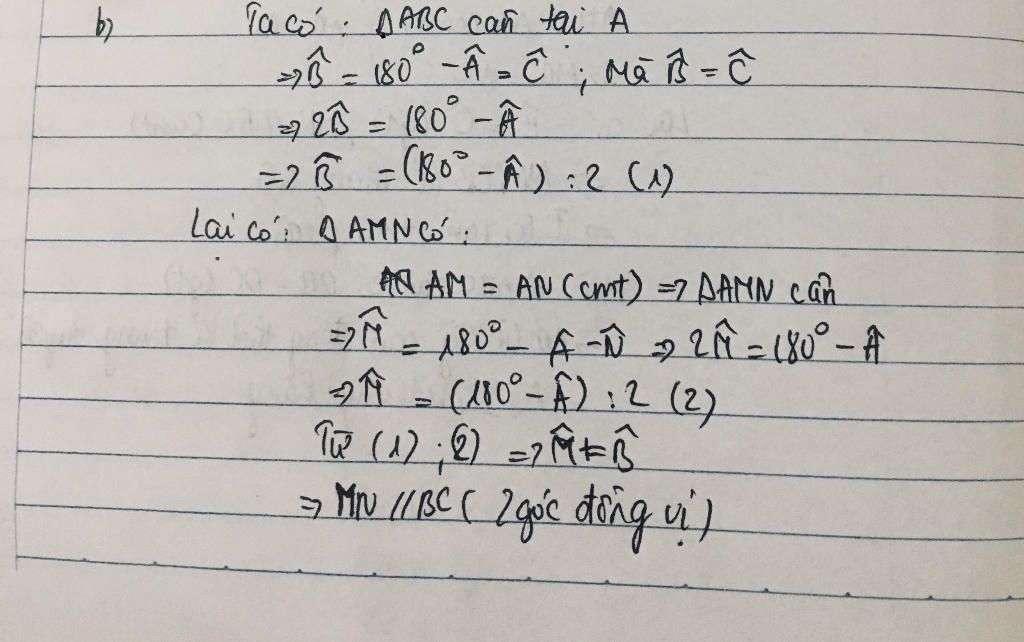 b) Ta có: ΔABC cân tại A
=> B̂ = 180° - Â = Ĉ ; Mà B̂ = Ĉ
=> 2B̂ = 180° - Â
=> B̂ = (180° - Â) : 2 (1)
Lại có: ΔAMN có:
AM = AN (cmt) => ΔAMN cân
=> M̂ = 180° - Â - N̂ => 2M̂ = 180° - Â
=> M̂ = (180° - Â) : 2 (2)
Từ (1) ; (2) => M̂ = B̂
=> MN // BC ( 2 góc đồng vị )